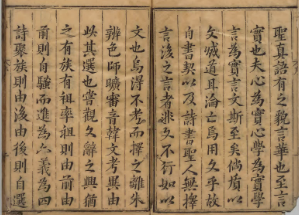 聖真語有之貌言華也至言
實也夫心為實心學為實學
言為實言文斯至矣以
文滅道耳淪亡為用文乎故
自書契以及諸書聖人無擇
言後之言者非文不行如以
文也烏得不考而擇之離朱
辨色師曠審音韓文考異由
此其選也嘗觀文辭之興猶
之有族有祖率祖則由前由
前則自騷而進為六義為四
詩聚族則由後由後則自選